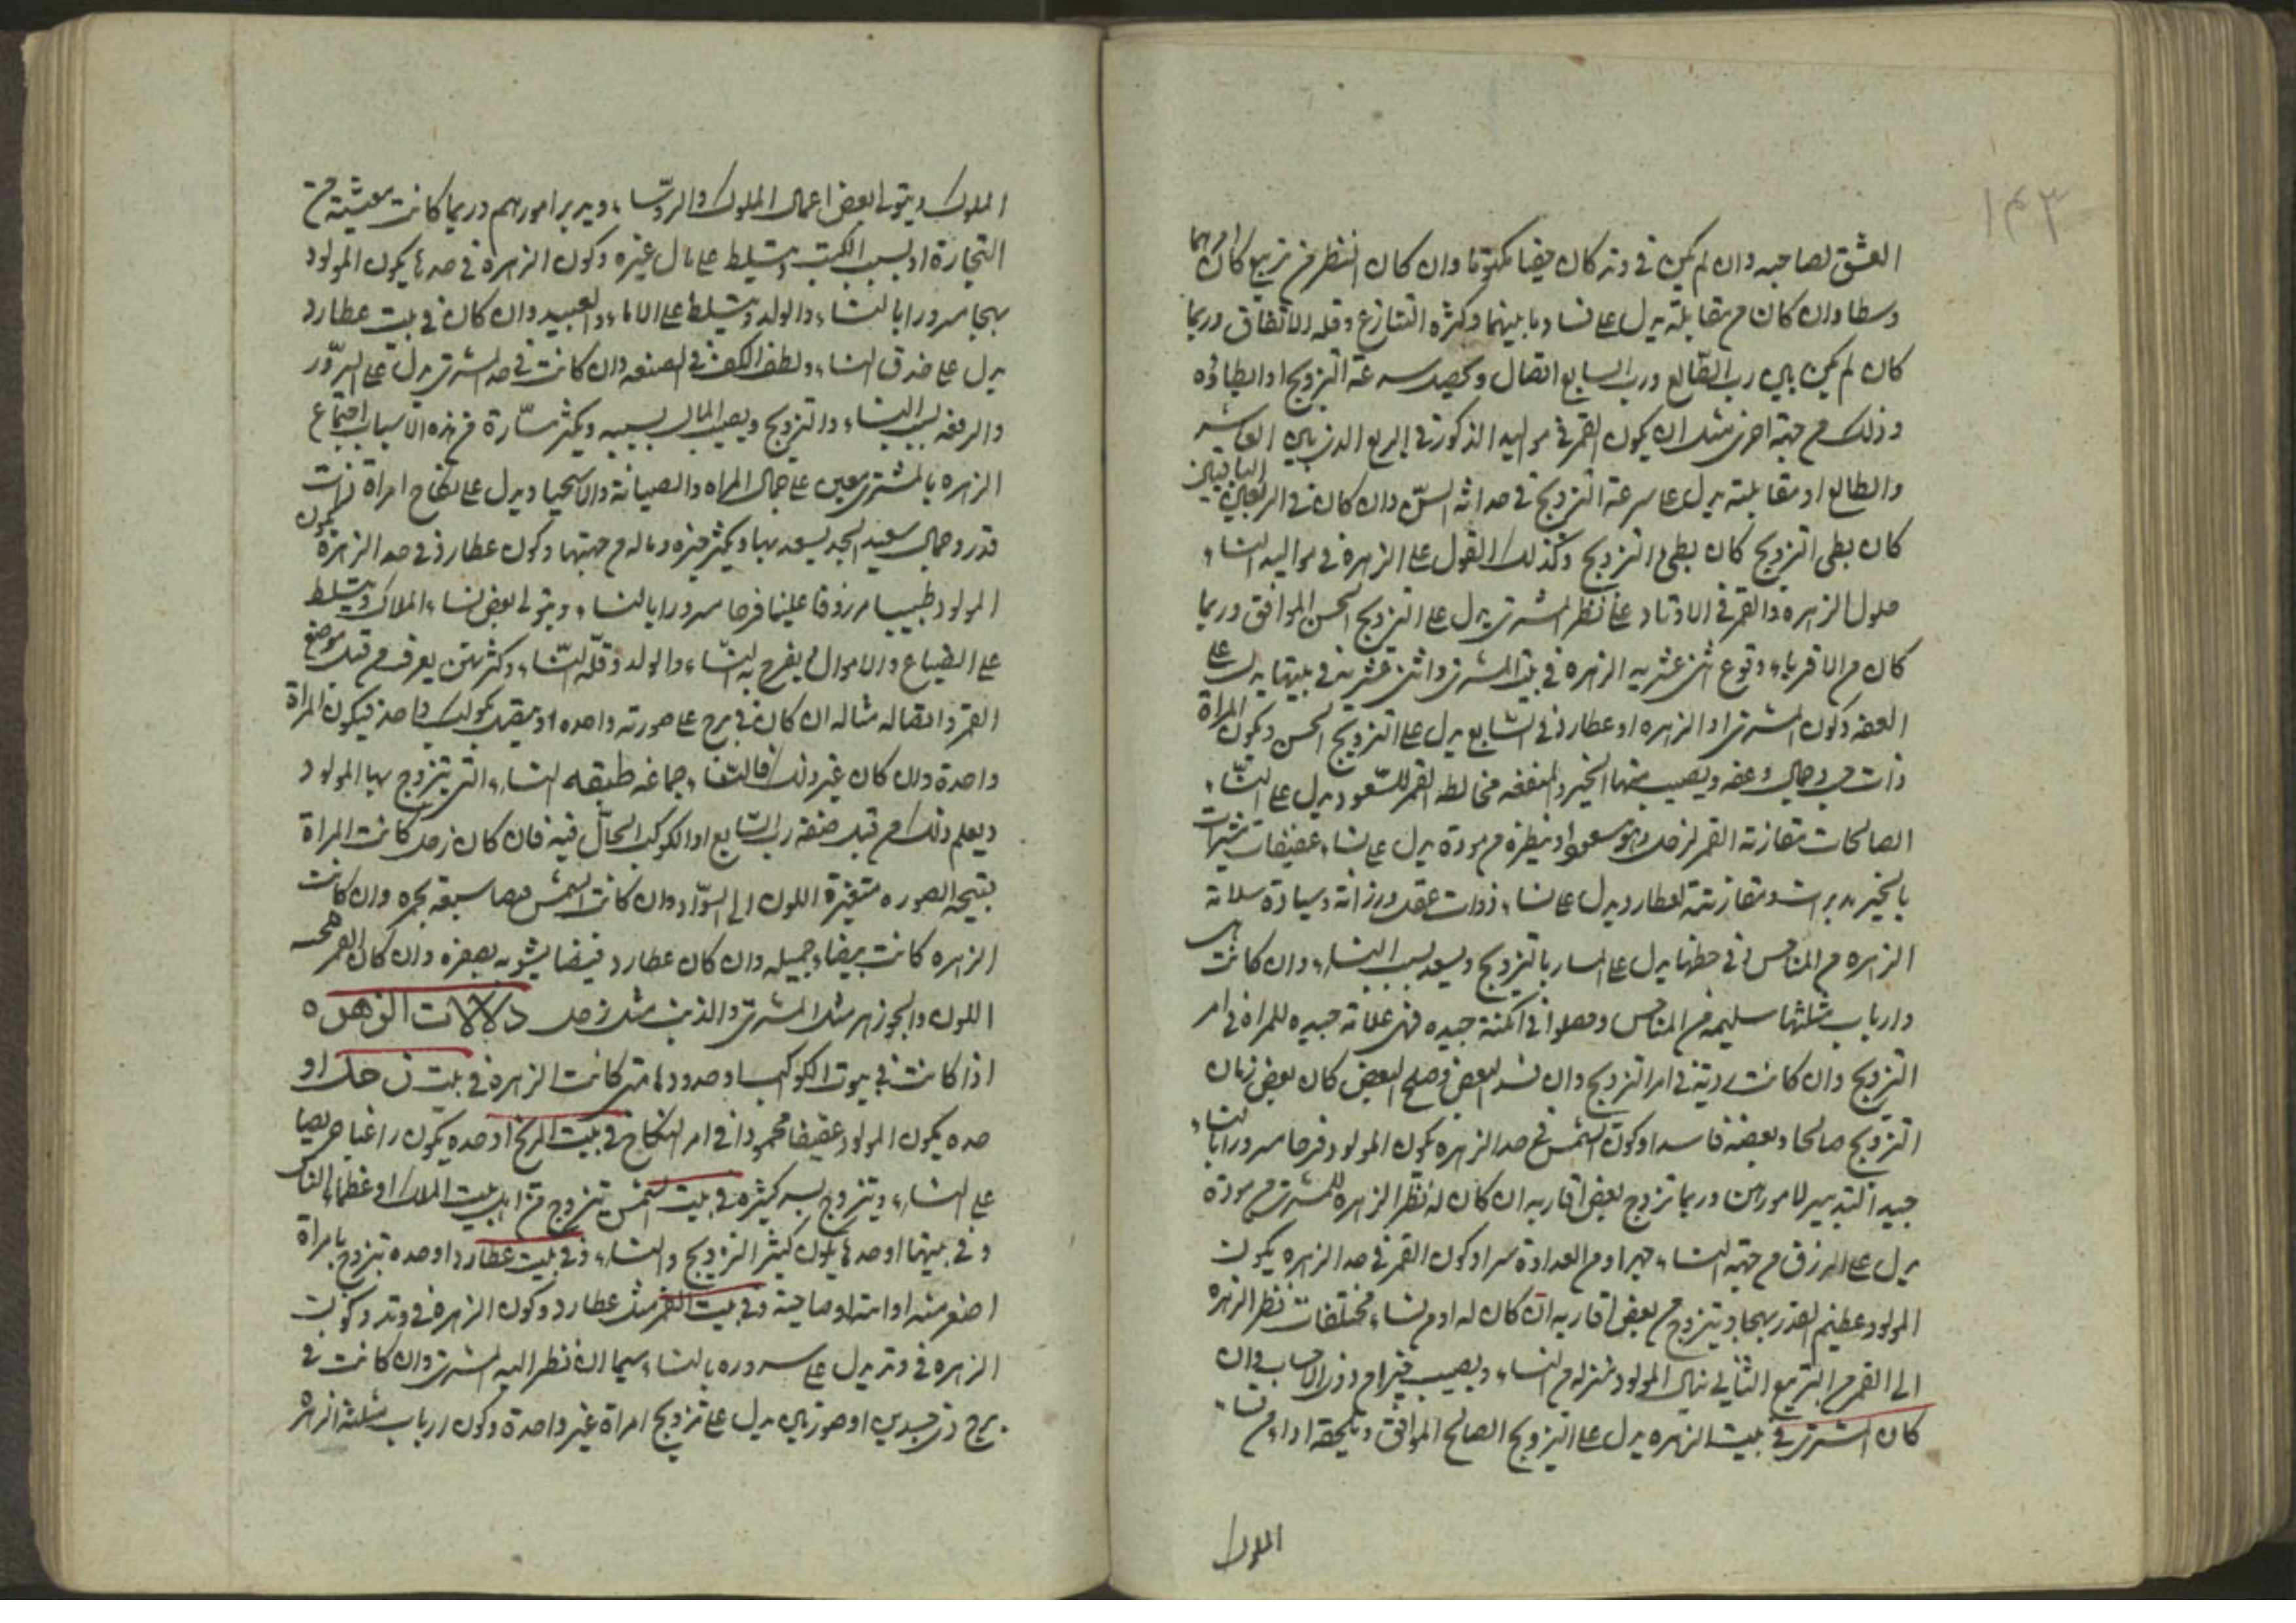 ١٤٣
العشق لصاحبه وان لم يكن في وتد كان خفيا مكتوما وان كان النظر من تربيع كان امرهما
وسطا وان كان من مقابلة يدل على فساد ما بينهما وكثرة التنازع وقلة الاتفاق وربما
كان لم يكن بين رب الطالع ورب السابع اتصال وتحصيل سرعة التزويج او ابطائه
وذلك من جهة اخرى مثل ان يكون القمر في مواليد الذكور في الربع الذي بين العاشر
والطالع او مقابلته يدل على سرعة التزويج في حداثة السن وان كان في الربعين الباقيين
كان بطي التزويج كان بطي التزويج وكذلك القول على الزهرة في مواليد النساء
حلول الزهرة والقمر في الاوتاد على نظر المشتري يدل على التزويج الحسن الموافق وربما
كان من الاقرباء وقوع اثنى عشرية الزهرة في بيت المشتري واثنى عشريته في بيتها يدل على
العفة وكون المشتري او الزهرة او عطارد في السابع يدل على التزويج الحسن وتكون المراة
ذات حسن وجمال وعفة ويصيب منها الخير والمنفعة مخالطة القمر للسعود يدل على النساء
الصالحات مقارنة القمر لزحل وهو مسعود او نظره من مودة يدل على نساء عفيفات مشيرات
بالخير مدبرات ومقارنته لعطارد يدل على نساء ذوات عقل ورزانة وسيادة سلامة
الزهرة من المناحس في حظها يدل على المسار بالتزويج ويسعد بسبب النساء وان كانت هي
وارباب مثلثتها سليمة من المناحس وحصلوا في امكنة جيدة فهي علامة جيدة للمراة في امر
التزويج وان كانت ردية في امر التزويج وان فسد البعض وصلح البعض كان بعض زمان
التزويج صالحا وبعضه فاسدا وكون الشمس في حد الزهرة يكون المولود فرحا مسرورا بالنساء
جيد التدبير لامورهن وربما تزوج بعض اقاربه ان كان له نظر الزهرة للمشتري من مودة
يدل على الرزق من جهة النساء جهرا ومن العداوة سرا وكون القمر في حد الزهرة يكون
المولود عظيم القدر بهجا ويتزوج من بعض اقاربه ان كان له او من نساء مختلفات نظر الزهرة
الى القمر من التربيع الثاني ينال المولود منزلة من النساء ويصيب خيرا من ذوى الاحساب وان
كان المشتري في بيت الزهرة يدل على التزويج الصالح الموافق وتلحقه اداء من نساء
الملوك
الملوك ويتولى بعض اعمال الملوك والروسا ويدبر امورهم وربما كانت معيشته من
التجارة او بسبب الكتب ويتسلط على مال غيره وكون الزهرة في حدها يكون المولود
بهجا مسرورا بالنساء والولد ويتسلط على الاماء والعبيد وان كان في بيت عطارد
يدل على حذق النساء ولطف الكف في الصنعة وان كانت في حد المشتري يدل على السرور
والرفعة بسبب النساء والتزويج ويصيب المال بسببه ويكثر مساره من هذه الاسباب اجتماع
الزهرة بالمشتري معين على جمال المراة والصيانة والاستحيا ويدل على نكاح امراة ذات
قدر وجمال سعيد الجد يسعد بها ويكثر خيره وماله من جهتها وكون عطارد في حد الزهرة يكون
المولود طبيبا مرزوقا عليما فرحا مسرورا بالنساء ويتولى بعض نساء الملاك ويتسلط
على الضياع والاموال يفرح به النساء والولد وقلة النساء وكثرتهن يعرف من قبل موضع
القمر واتصاله مثاله ان كان في برج على صورته واحدة او يتصل بكوكب واحد فيكون المراة
واحدة وان كان غير ذلك فالنساء جماعة طبقه النساء التي يتزوج بها المولود
ويعلم ذلك من قبل صفة رب السابع او الكوكب الحال فيه فان كان زحل كانت المراة
قبيحه الصوره متغيرة اللون الى السواد وان كانت الشمس بحمره وان كانت
الزهره كانت بيضاء جميله وان كان عطارد فبيضا يشوبه بصفره وان كان القمر
اللون والجوزهر مثل المشتري والذنب مثل زحل دلالات الزهره
اذا كانت في بيوت الكواكب وحدودها متى كانت الزهرة في بيت زحل او
حده يكون المولود عفيفا محمودا في امر النكاح في بيت المريخ او حده يكون راغبا حريصا
على النساء ويتزوج بسر كثيره في بيت الشمس يتزوج من اهل بيت الملك او عظماء الناس
وفي بيتها او حدها يكون كثير التزويج والنساء وفي بيت عطارد او حده تزوج بامراة
اصغر منه او امته او صاحبته وفي بيت القمر مثل عطارد وكون الزهرة في وتد وكون
الزهرة في وتد يدل على سروره بالنساء سيما ان نظر اليه المشتري وان كانت في
برج ذي جسدين او صورتين يدل على تزويج امراة غير واحدة وكون ارباب مثلثة الزهرة